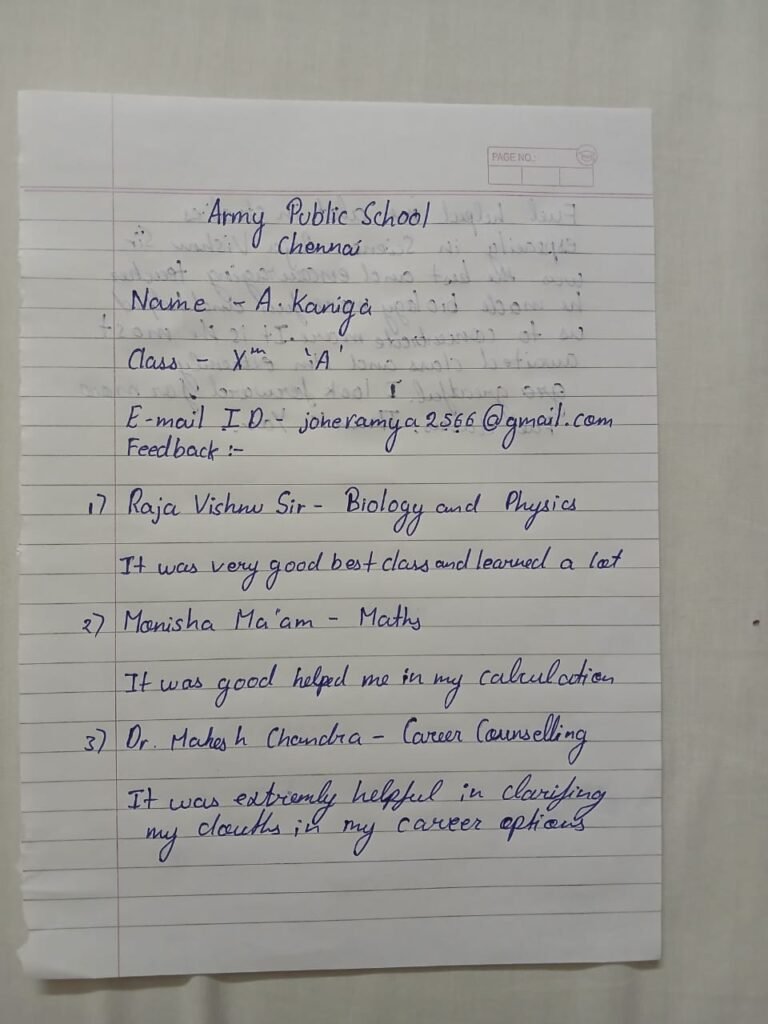 PAGE NO.:
Army Public School
Chennai
Name - A. Kaniga
Class - Xth 'A'
E-mail ID - joheramya2566@gmail.com
Feedback :-
1) Raja Vishnu Sir - Biology and Physics
It was very good best class and learned a lot
2) Monisha Ma'am - Maths
It was good helped me in my calculation
3) Dr. Mahesh Chandra - Career Counselling
It was extremly helpful in clarifing
my douths in my career options